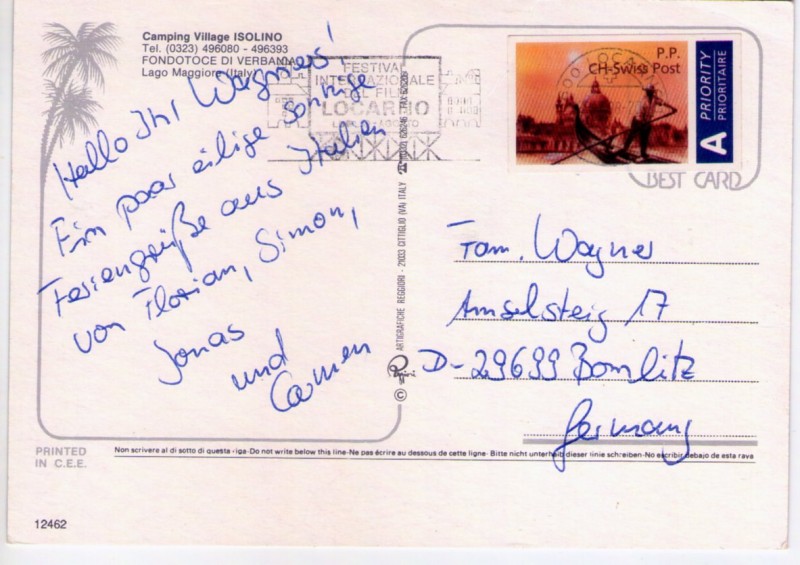 Camping Village ISOLINO
Tel. (0323) 496080 - 496393
FONDOTOCE DI VERBANIA
Lago Maggiore (Italy)
Hallo Ihr Wagners!
Ein paar eilige sonnige
Feriengrüße aus Italien
von Florian, Simon,
Jonas
und
Carmen
FESTIVAL
INTERNAZIONALE
DEL FILM
LOCARNO
P.P.
CH-Swiss Post
A PRIORITY
PRIORITAIRE
BEST CARD
ARTIGRAFICHE REGGIORI - 21033 CITTIGLIO (VA) ITALY
Fam. Wagner
Amselsteig 17
D-29699 Bomlitz
Germany
PRINTED
IN C.E.E.
Non scrivere al di sotto di questa riga-Do not write below this line-Ne pas écrire au dessous de cette ligne- Bitte nicht unterhalb dieser linie schreiben-No escribir debajo de esta raya
12462